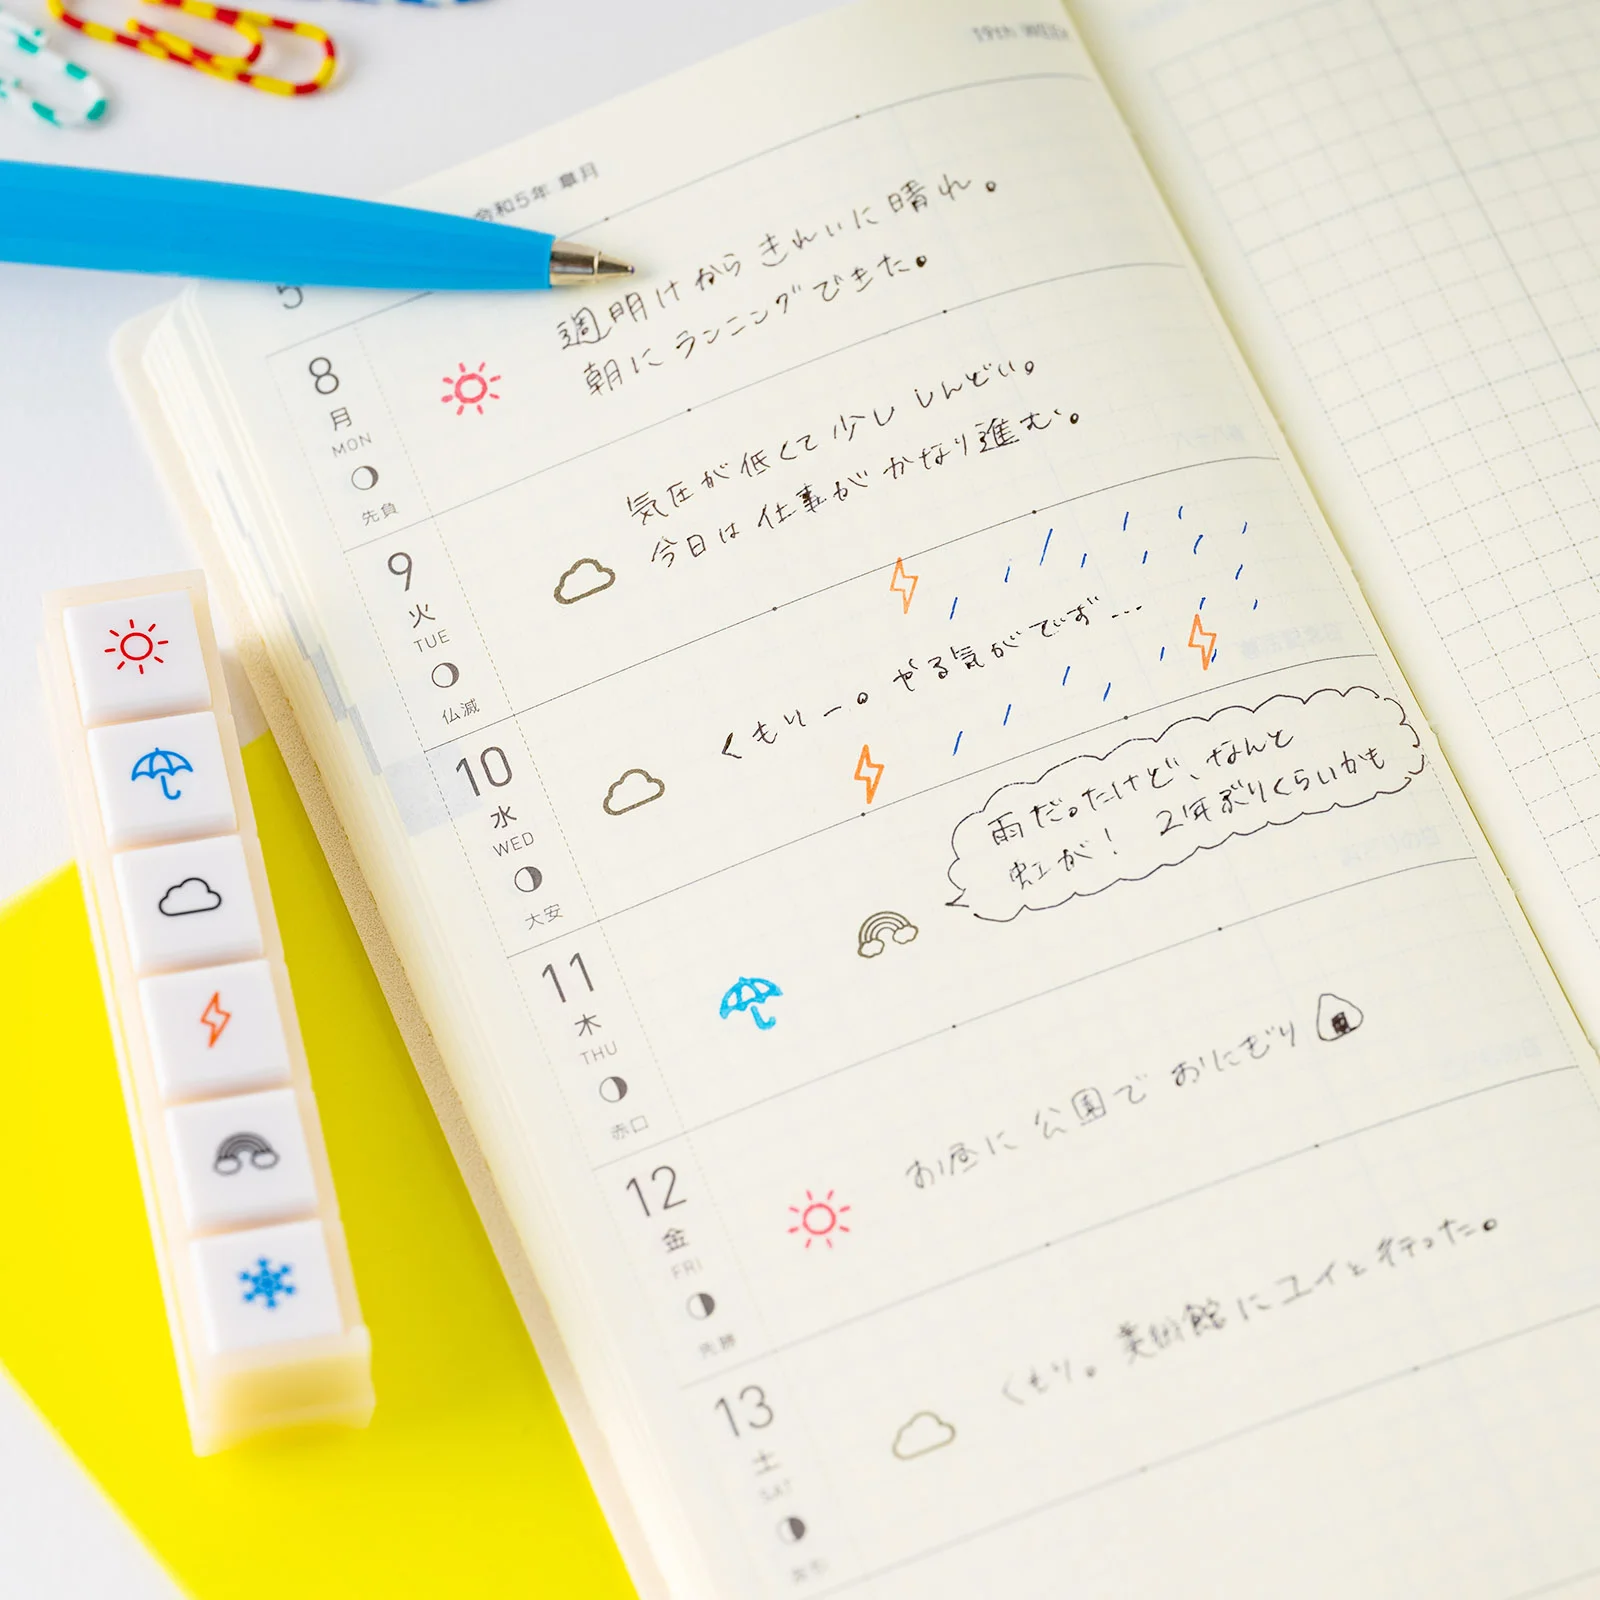 19th WEEK
令和5年 皐月
5
8
月
MON
先負
週明けからきれいに晴れ。
朝にランニングできた。
9
火
TUE
仏滅
気圧が低くて少ししんどい。
今日は仕事がかなり進む。
10
水
WED
大安
くもりー。やる気がでず…
11
木
THU
赤口
雨だったけど、なんと
虹が! 2年ぶりくらいかも
12
金
FRI
先勝
お昼に公園でおにぎり
13
土
SAT
友引
くもり。美術館にユイと行った。